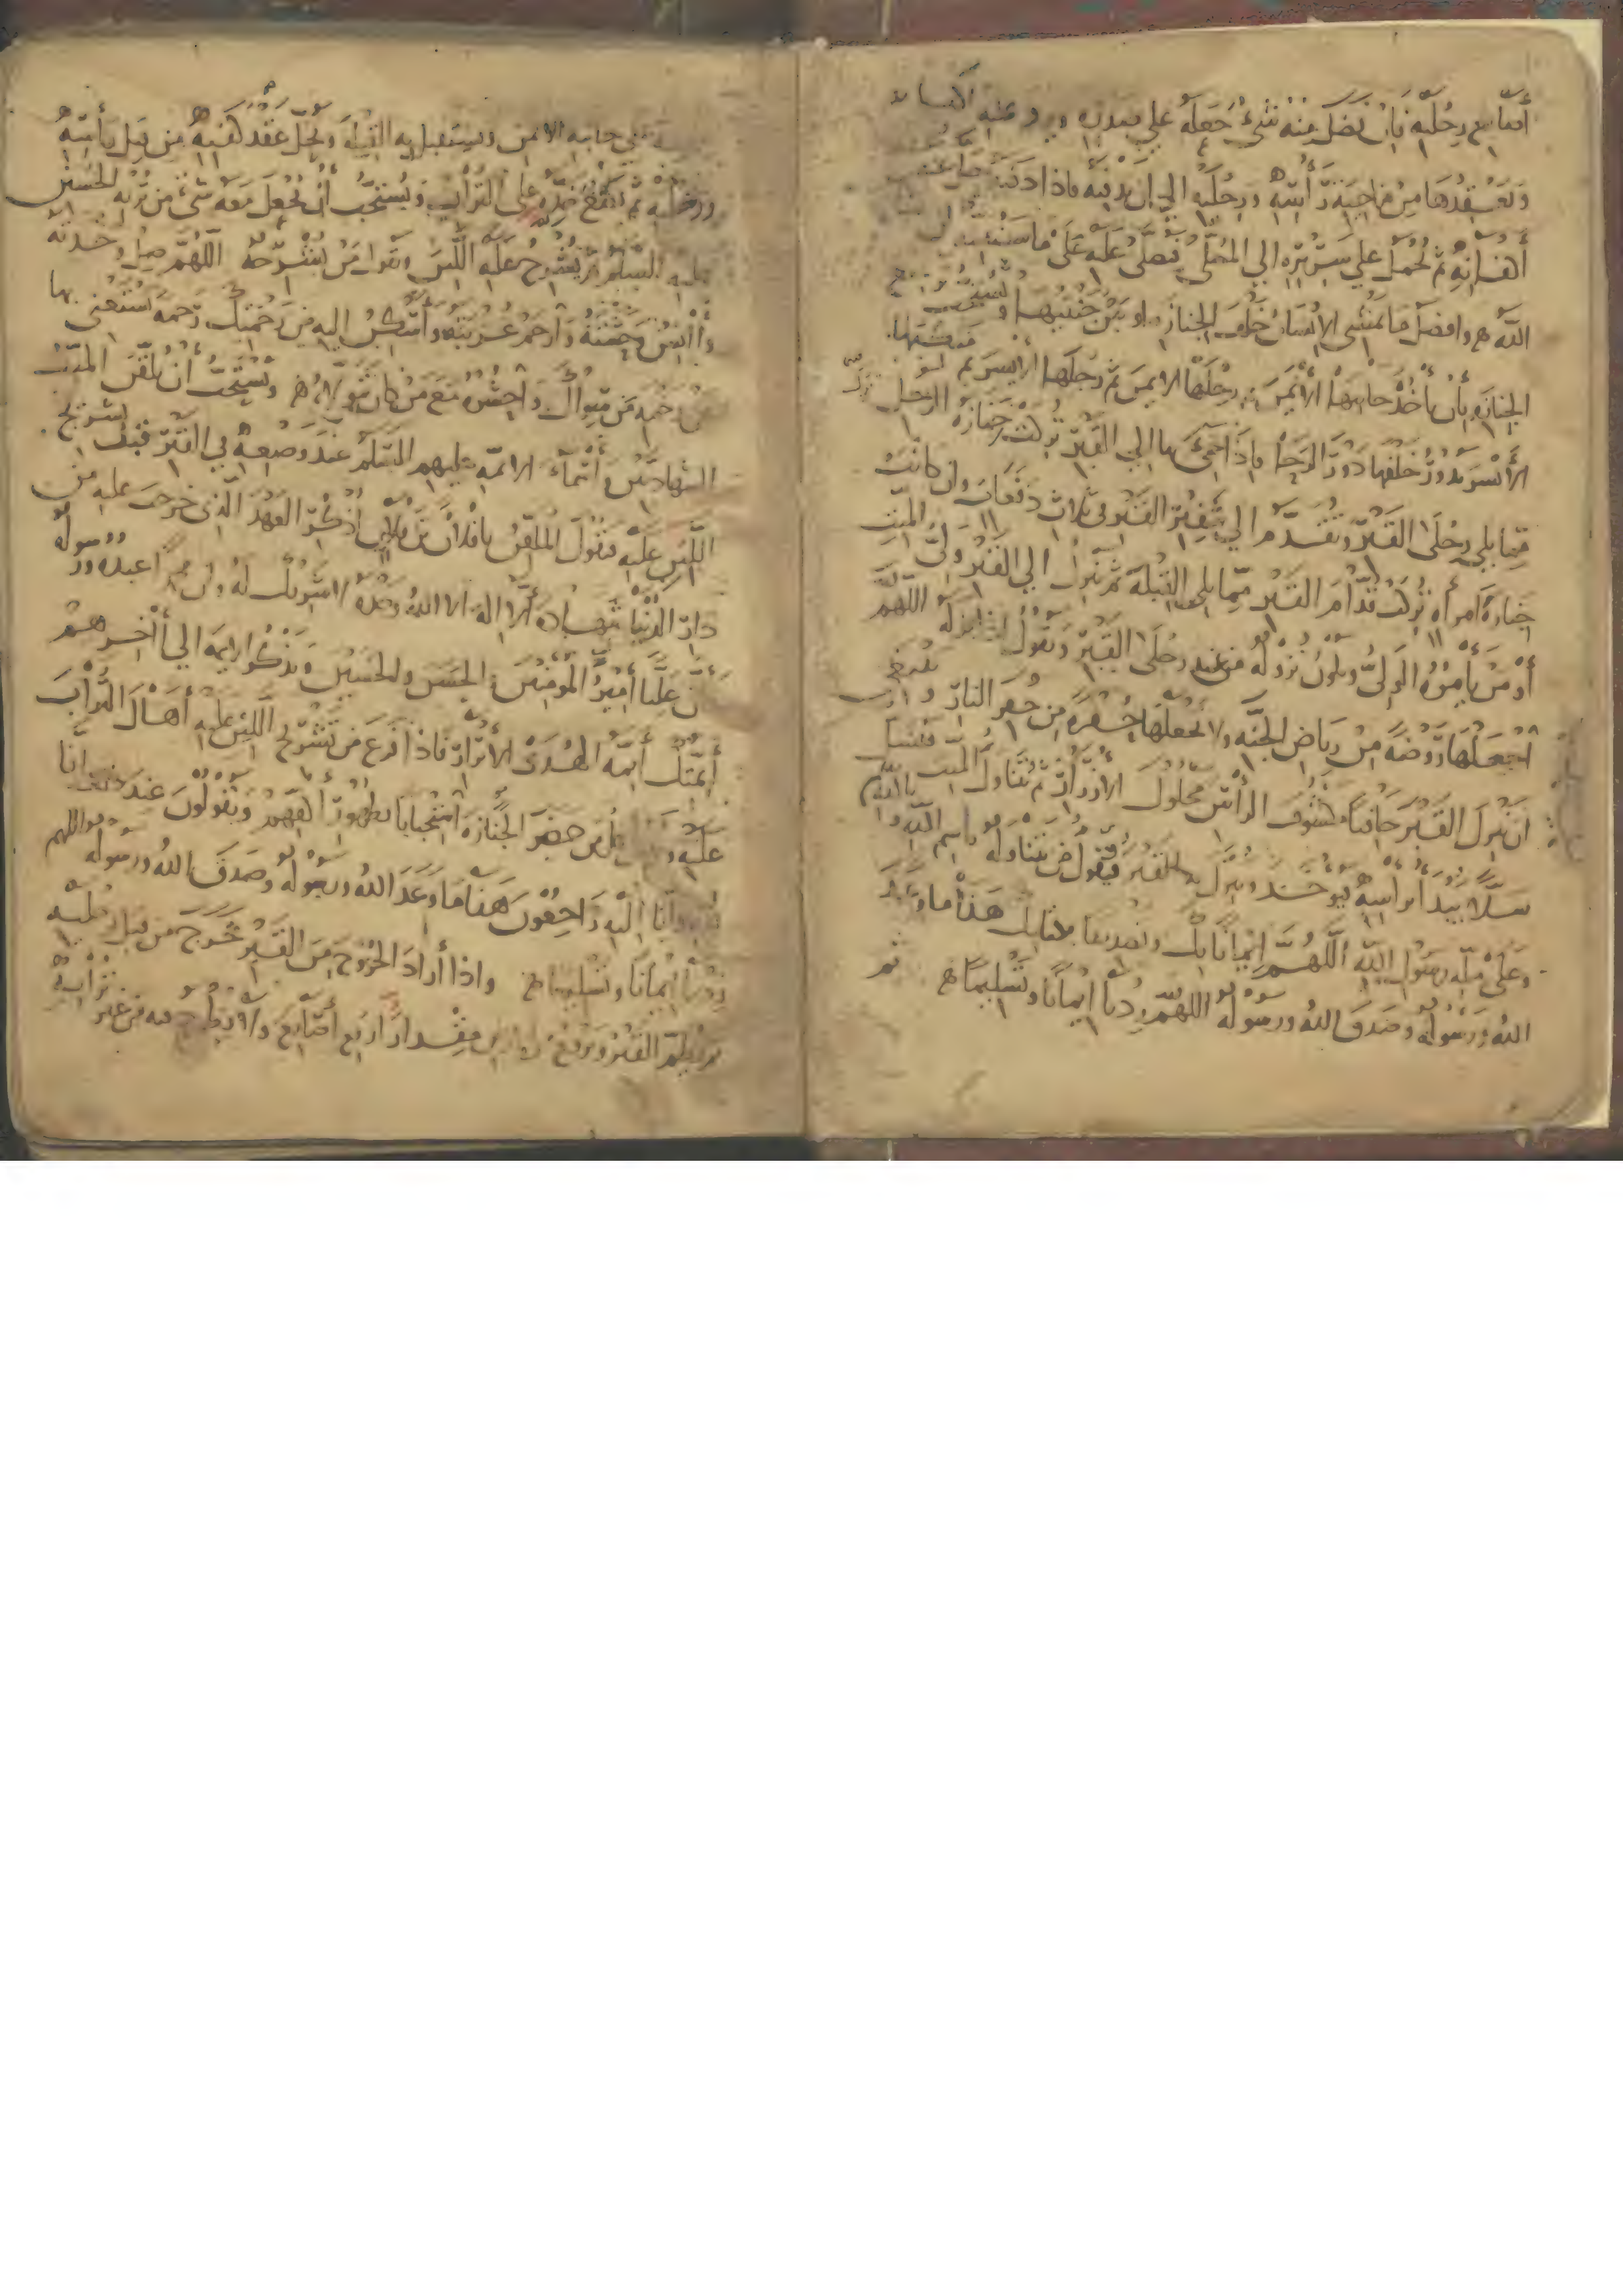 أصابع رجليه فان فضل منه شيء جعله علي صدره
وتعقدها من ناحية رأسه ورجليه الي ان يدفنه فاذا دفنه حل عنه
أكفانه ثم يحمل علي سريره الي المصلى فيصلى عليه على ما سنبينه ان
الله وافضل ما يمشي الانسان خلف الجنازه او بين جنبيها
الجنازه بأن يأخذ جانبها الأيمن ثم رجلها الايمن ثم رجلها الأيسر ثم
الأيسر يدور خلفها دور الرحا فاذا جيء بها الي القبر تركت جنازة الرجل
مما يلي رجلى القبر وتقدم الي شفير القبر في ثلاث دفعات وان كانت
جنازة امرأه تركت قدام القبر مما يلي القبلة ثم ينزل الي القبر ولي الميت
أو من يأمره الولي ويكون نزوله من عند رجلى القبر ويقول اذا نزله اللهم
اجعلها روضة من رياض الجنه ولا تجعلها حفرة من حفر النار
ان ينزل القبر حافيا مكشوف الرأس محلول الأزرار ثم يتناول الميت
سلا يبدأ برأسه فيوخذ وينزل به القبر فيقول من يتناوله باسم الله و
وعلى ملة رسول الله اللهم إيمانا بك وتصديقا بكتابك هذا ما وعد
الله ورسوله وصدق الله ورسوله اللهم زدنا ايمانا وتسليما ثم
على جانبه الايمن ويستقبل به القبلة ويحل عقد كفنه من قبل رأسه
ورجليه ثم يضع خده على التراب ويستحب أن يجعل معه شيء من تربة الحسين
عليه السلم ثم يشرح عليه اللبن ويقول من يشرجه اللهم صل وحدته
وآنس وحشته وارحم غربته وأسكن اليه من رحمتك رحمة يستغني بها
عن رحمه من سواك واحشره مع من كان يتولاه ويستحب أن يلقن الميت
الشهادتين وأسماء الائمه عليهم السلم عند وضعه في القبر قبل تشريج
اللبن عليه فيقول الملقن يا فلان بن فلان أذكر العهد الذي خرجت عليه من
دار الدنيا شهادة ألا اله الا الله وحده لا شريك له وان محمدا عبده ورسوله
وأن عليا أمير المومنين والحسن والحسين ويذكر الايمة الي أخرهم
أيمتك أيمة الهدى الأبرار فاذا فرغ من تشريج اللبن عليه أهال التراب
عليه و كل من حضر الجنازة استحبابا بظهور أكفهم ويقولون عند ذلك انا
لله وانا إليه راجعون هذا ما وعد الله ورسوله وصدق الله ورسوله اللهم
زدنا إيمانا وتسليما واذا أراد الخروج من القبر خرج من قبل رجليه
ثم يطم القبر ويرفع من الارض مقدار أربع أصابع ولا يطرح فيه من غير ترابه